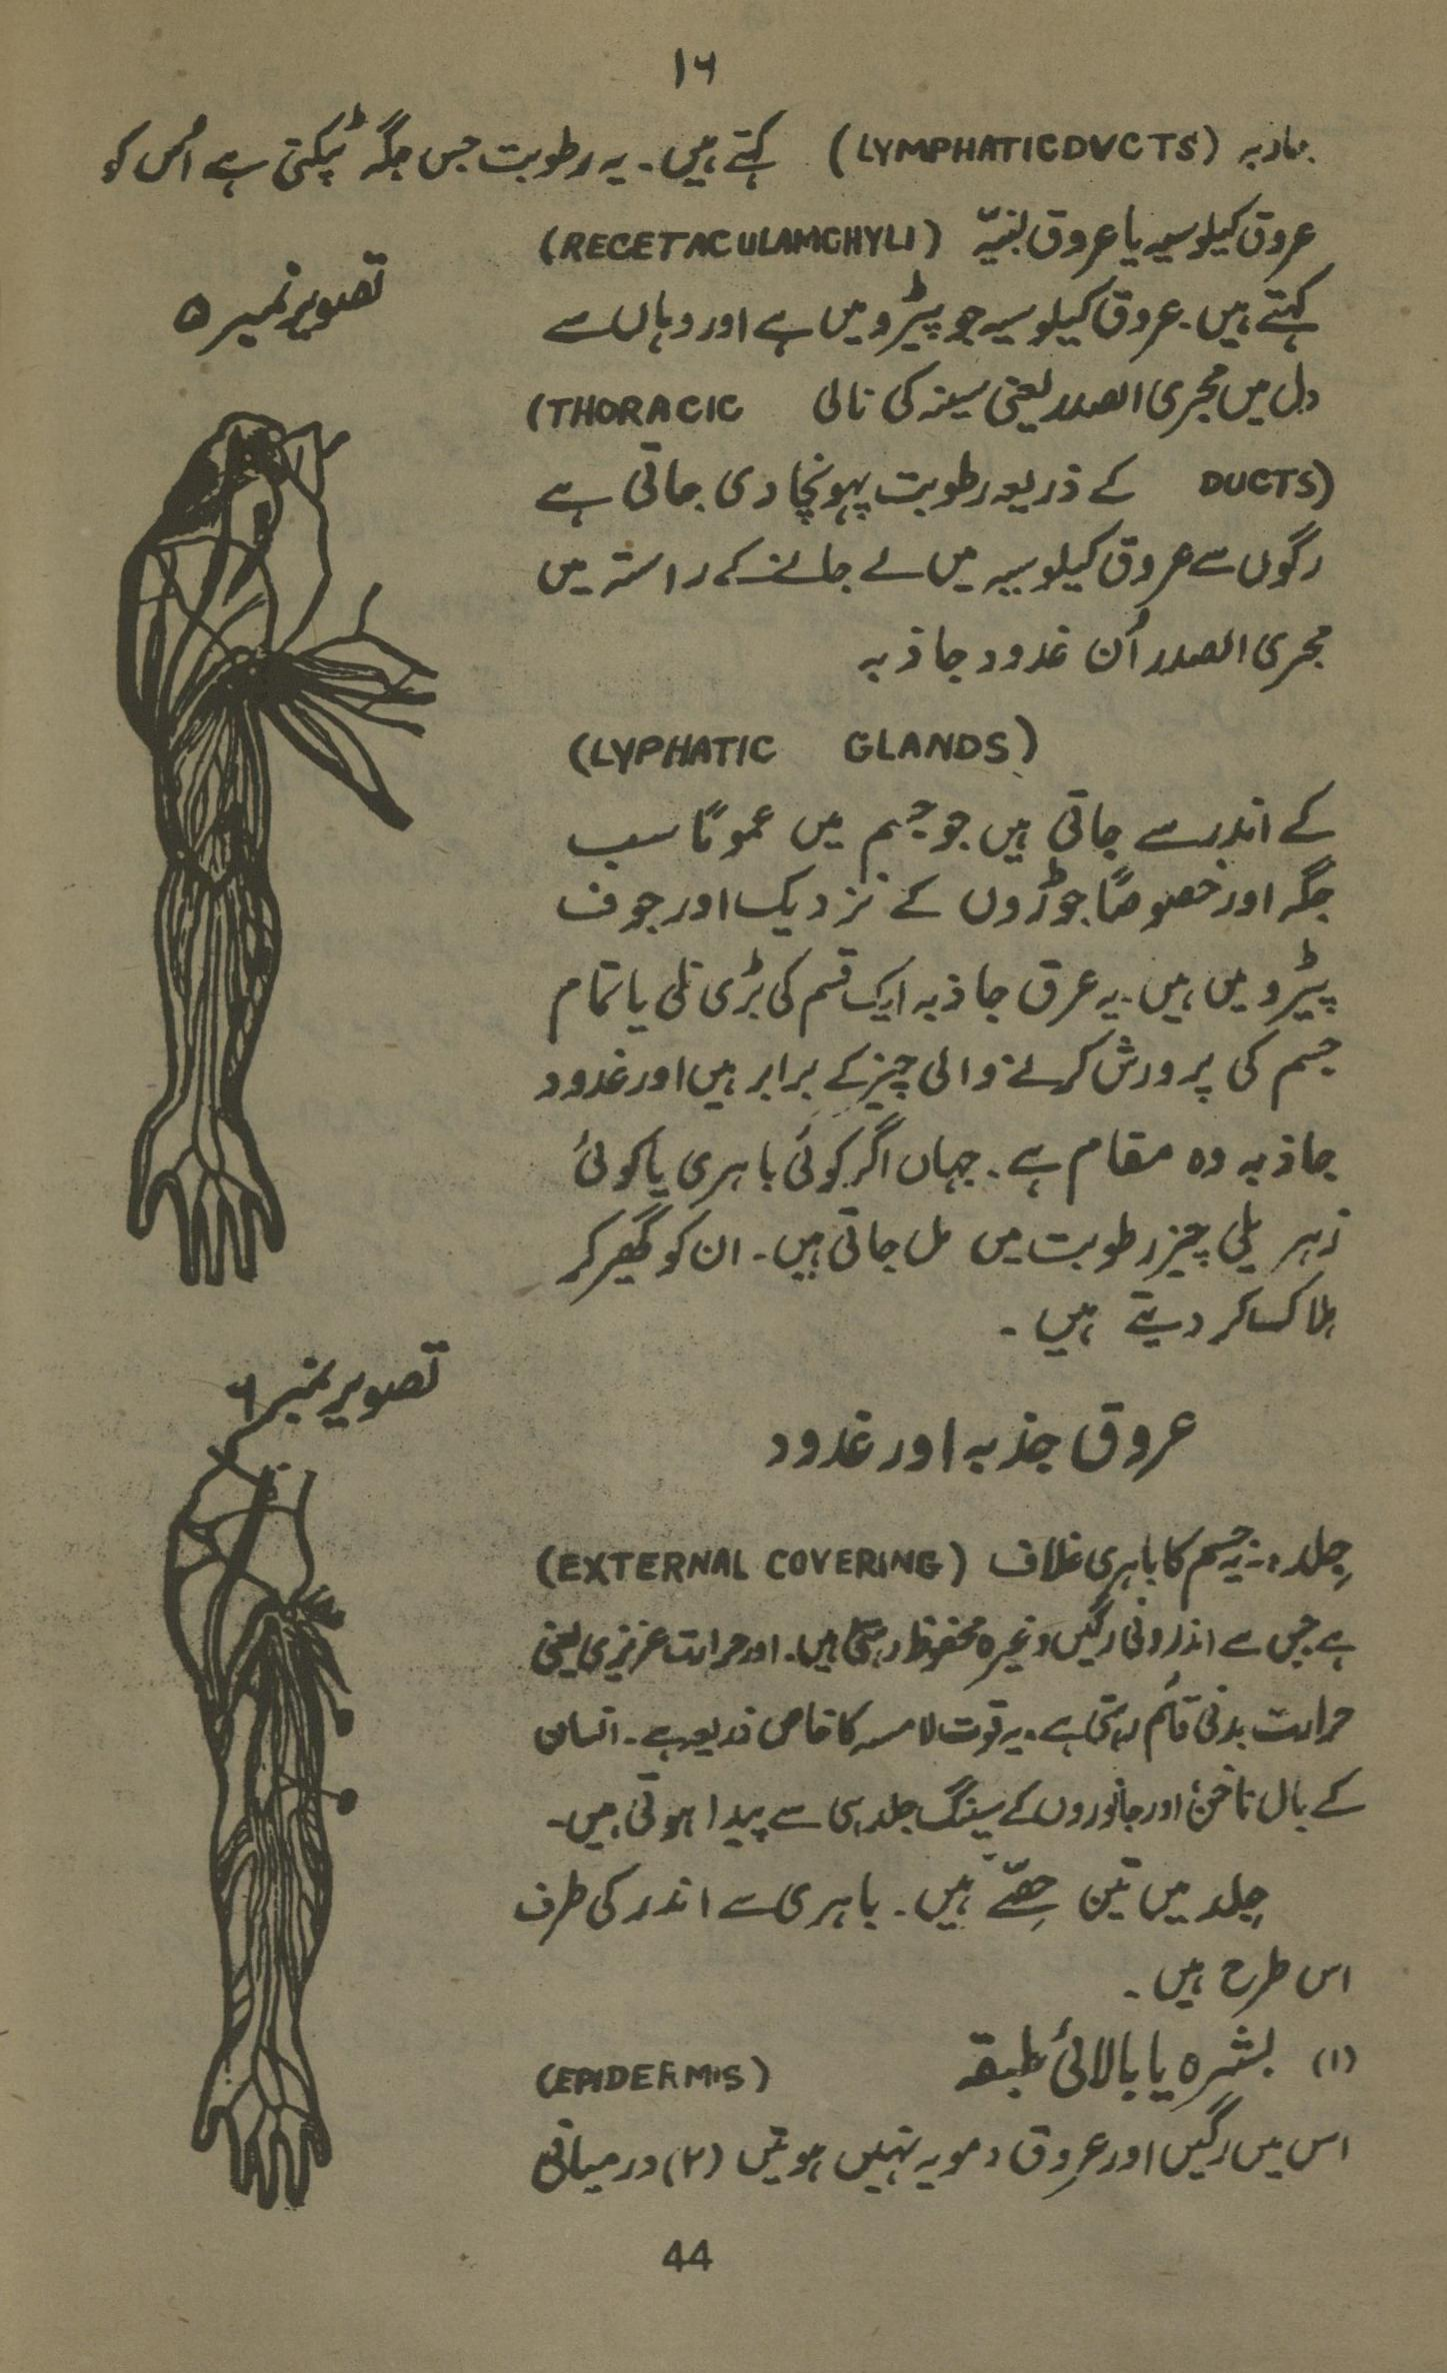 ۱۶
جاذبہ (LYMPHATICDUCTS) کہتے ہیں۔ یہ رطوبت جس جگہ ٹپکتی ہے اُس کو
عروق کیلوسیہ یا عروق لبنیّہ (RECETACULAMCHYLI)
تصویر نمبر ۵
کہتے ہیں۔ عروق کیلوسیہ جو پیڑو میں ہے اور وہاں سے
دل میں مجری الصدر یعنی سینہ کی نالی (THORACIC
DUCTS) کے ذریعہ رطوبت پہونچا دی جاتی ہے
رگوں سے عروق کیلوسیہ میں لے جانے کے راستہ میں
مجری الصدر اُن غدود جاذبہ
(LYPHATIC GLANDS)
کے اندر سے جاتی ہیں جو جسم میں عموماً سب
جگہ اور خصوصاً جوڑوں کے نزدیک اور جوف
پیڑو میں ہیں۔ یہ عرق جاذبہ ایک قسم کی بڑی نلی یا تمام
جسم کی پرورش کرنے والی چیز کے برابر ہیں اور غدود
جاذبہ وہ مقام ہے۔ جہاں اگر کوئی باہری یا کوئی
زہریلی چیز رطوبت میں مل جاتی ہیں۔ ان کو گھیر کر
ہلاک کر دیتے ہیں۔
تصویر نمبر ۶
عروق جذبہ اور غدود
جِلد:۔ یہ جسم کا باہری غلاف (EXTERNAL COVERING)
ہے جس سے اندرونی رگیں وغیرہ محفوظ رہتی ہیں۔ اور حرارت عزیزی یعنی
حرارت بدنی قائم رہتی ہے۔ یہ قوت لامسہ کا خاص ذریعہ ہے۔ انسان
کے بال ناخن اور جانوروں کے سینگ جلد ہی سے پیدا ہوتی ہیں۔
جِلد میں تین حِصّے ہیں۔ باہری سے اندر کی طرف
اس طرح ہیں۔
(۱) بشرہ یا بالائی طبقہ (EPIDERMIS)
اس میں رگیں اور عروق دمویہ نہیں ہوتیں (۲) درمیانی
44